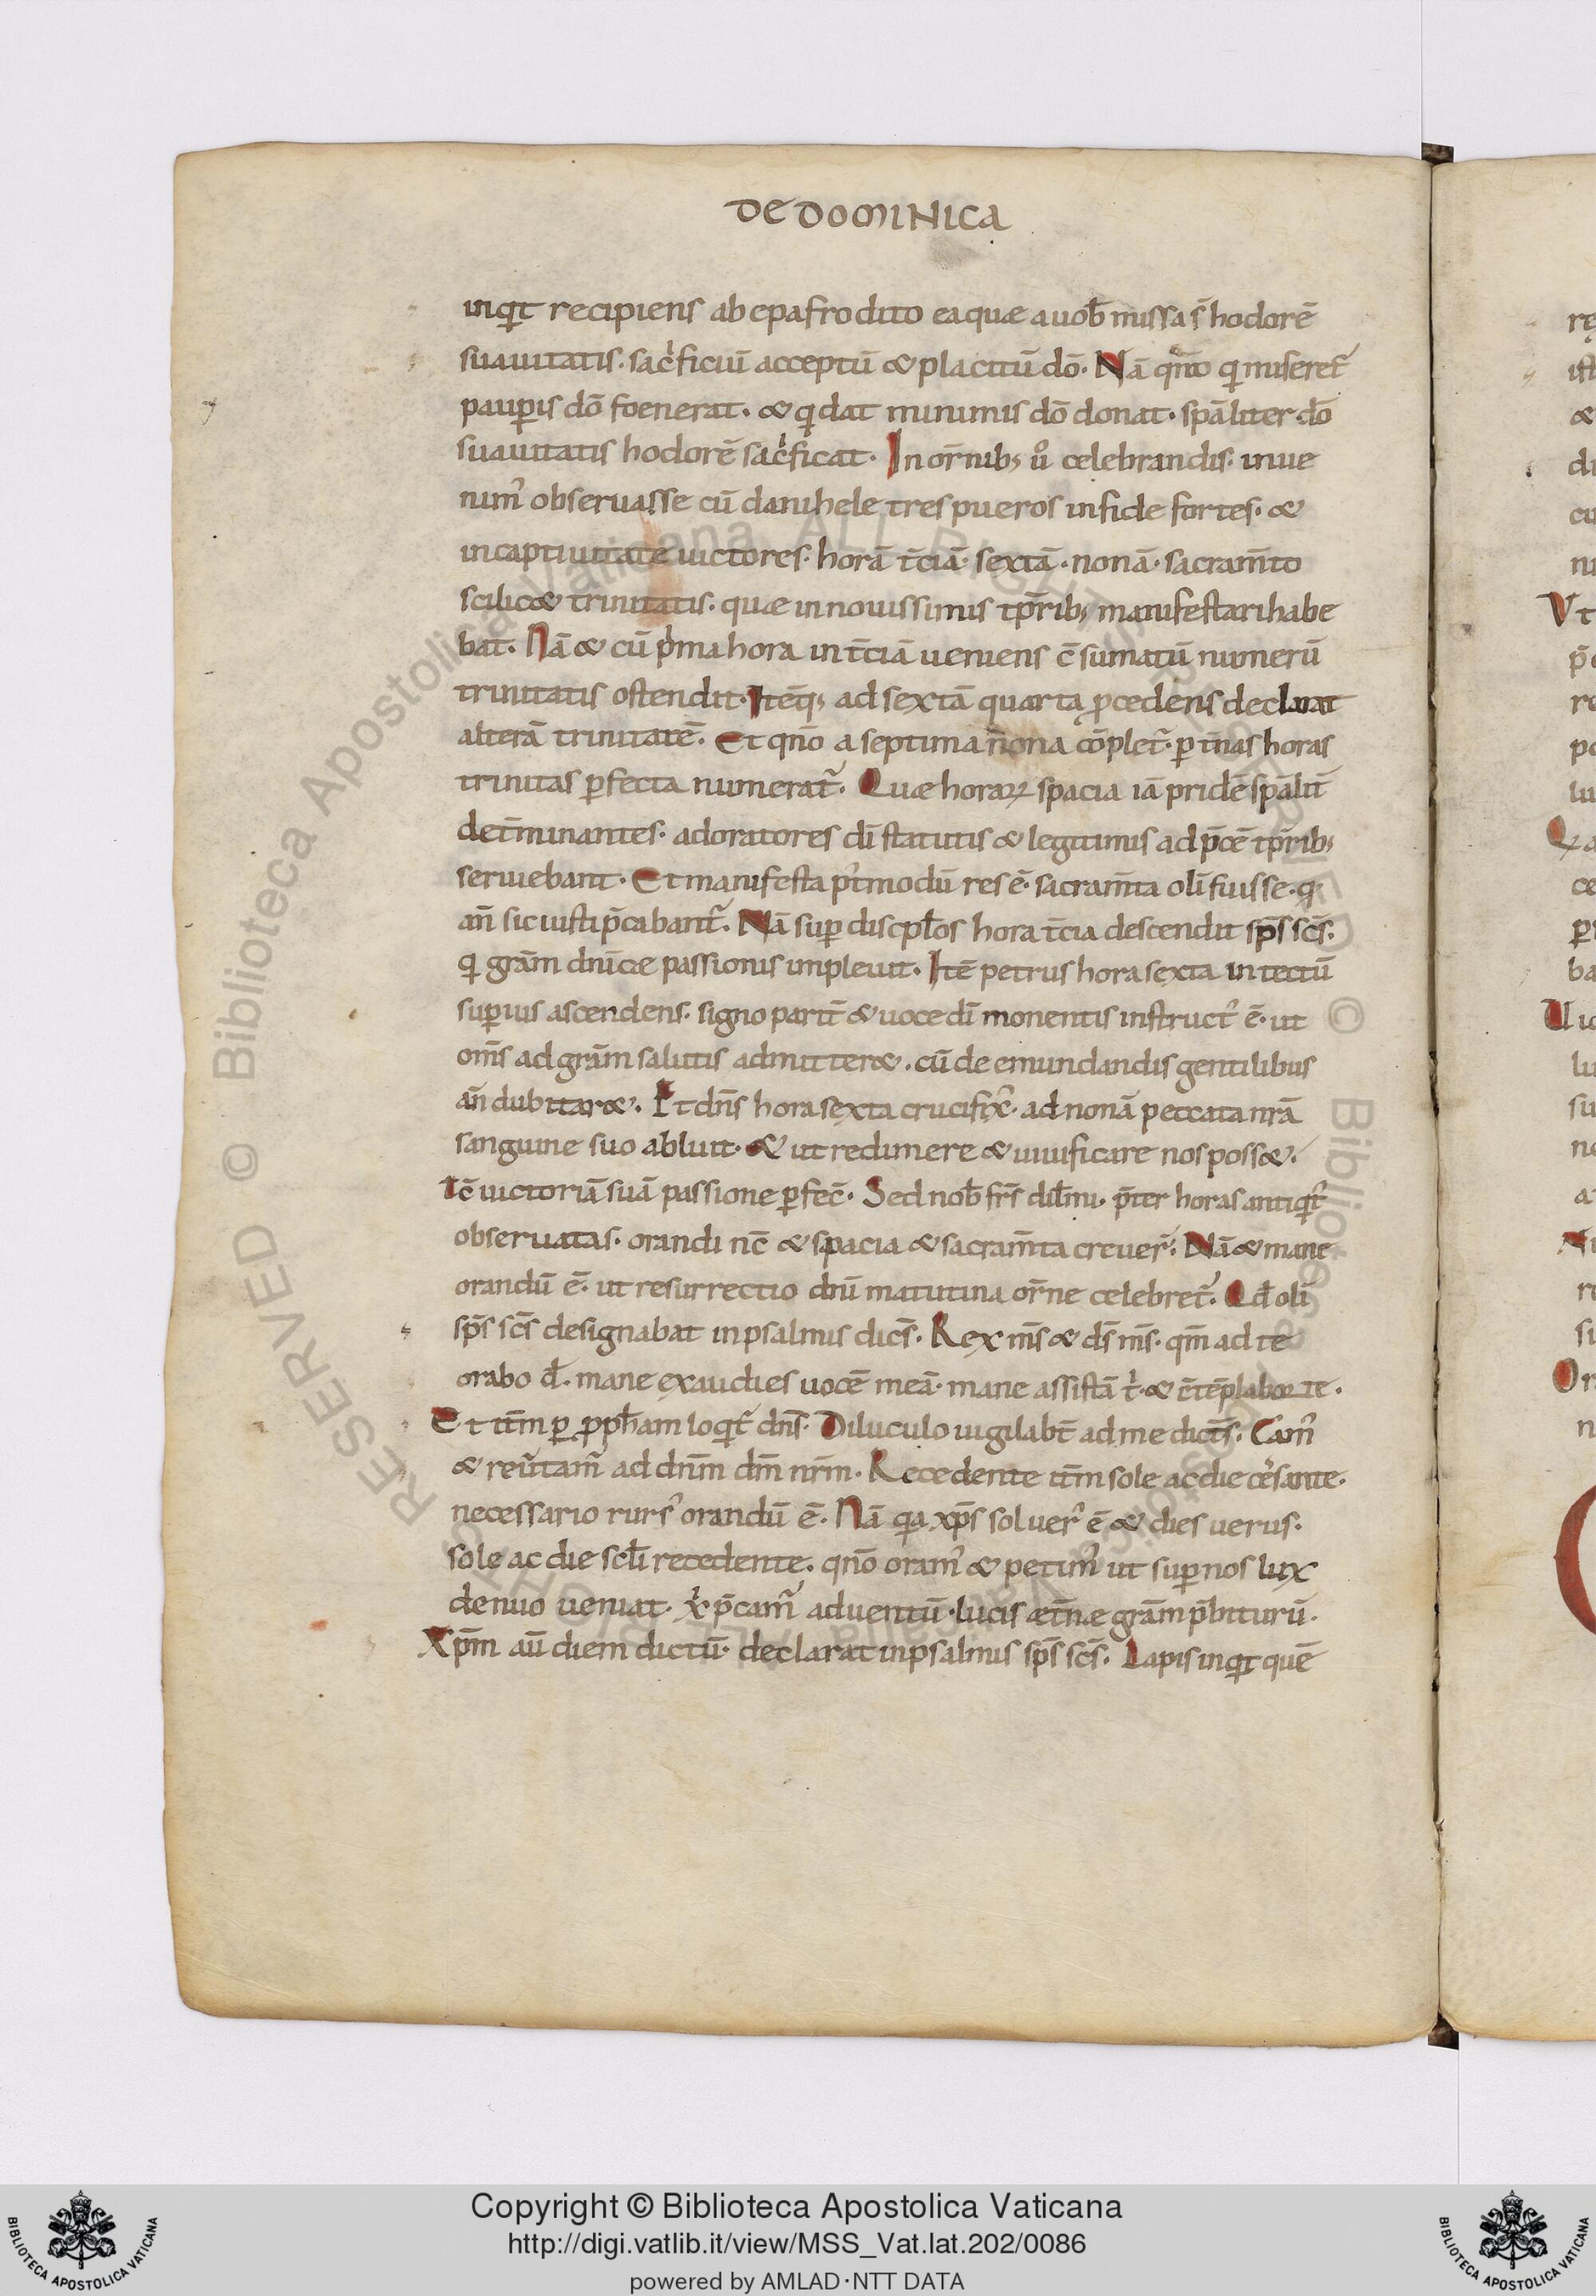 DE DOMINICA
inqͥt recipiens ab epafrodito ea quæ a uob̄ missa s̄ hodorē
suauitatis· sac̍ficiū acceptū & placitū dō· Nā qn̄o qͥ miseret᷑
paup̲is dō foenerat· & qͥ dat minimis dō donat· sp̄aliter dō
suauitatis hodorē sac̍ficat· In or̄nib; ů celebrandis· inue
nim᷒ obseruasse cū danihele tres pueros in fide fortes· &
in captiuitate uictores· horā t̄ciā· sextā· nonā· sacram̄to
scilic& trinitatis· quæ in nouissimis tp̄rib; manifestari habe
bat· Nā & cū p̍ma hora in t̄ciā ueniens c̄sumatū numerū
trinitatis ostendit· Itēq; ad sextā quarta ꝓcedens declarat
alterā trinitatē· Et qn̄o a septima nona cōplet᷑· p̲ t̄nas horas
trinitas p̲fecta numerat᷑· Quæ horaꝝ spacia iā pridē sp̄alit̄
det̄minantes· adoratores dī statutis & legitimis ad p̄cē tp̄rib;
seruiebant· Et manifesta p᷒tmodū res ē· sacram̄ta olī fuisse· qͥ
an̄ sic iusti p̄cabant᷑· Nā sup̲ discipl̄os hora t̄cia descendit sp̄s sc̄s·
qͥ grām dn̄icæ passionis impleuit· Itē petrus hora sexta in tectū
sup̲ius ascendens· signo parit̄ & uoce dī monentis instruct᷒ ē· ut
om̄s ad grām salutis admitter&· cū de emundandis gentilibus
an̄ dubitar&· Et dn̄s hora sexta crucifix᷒· ad nonā peccata nrā
sanguine suo abluit· & ut redimere & uiuificare nos poss&·
Tc̄ uictoriā suā passione p̲fec̄· Sed nob̄ fr̄s dil̄mi· p̄ter horas antiqͥt᷒
obseruatas· orandi nc̄ & spacia & sacram̄ta creuer᷑· Nā & mane
orandū ē· ut resurrectio dn̄i matutina or̄ne celebret᷑· Qd̄ olī
sp̄s sc̄s designabat in psalmis dic̄s· Rex m̄s & ds̄ m̄s· qm̄ ad te
orabo d̄· mane exaudies uocē meā· mane assistā t̍· & c̄tēplabor te·
Et itm̄ p̲ ꝓph̄am loqͥt᷑ dn̄s· Diluculo uigilabt̄ ad me dict̄s· Eam᷒
& reu̅tam᷑ ad dn̄m dm̄ nr̄m· Recedente itm̄ sole ac die cēsante·
necessario rurs᷒ orandū ē· Nā qͥa xp̄s sol uer᷒ ē & dies uerus·
sole ac die sc̄li recedente· qn̄o oram᷒ & petim᷒ ut sup̲ nos lux
denuo ueniat· x̍ p̄cam᷑ aduentū· lucis æt̄næ grām p̄biturū·
Xp̄m aū diem dictū· declarat in psalmis sp̄s sc̄s· Lapis inqͥt quē
Copyright © Biblioteca Apostolica Vaticana
http://digi.vatlib.it/view/MSS_Vat.lat.202/0086
powered by AMLAD·NTT DATA